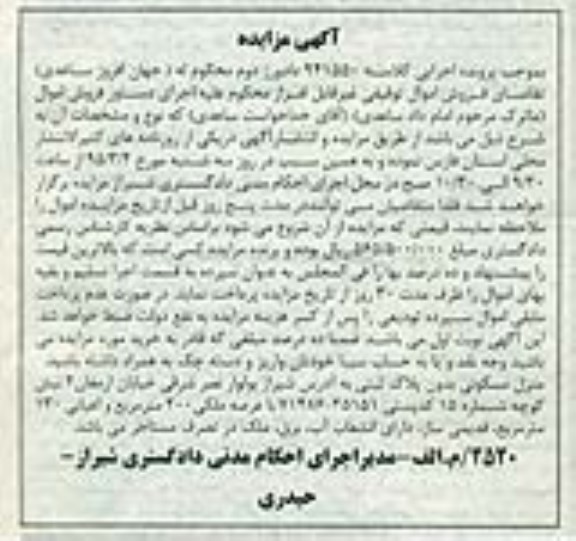 آگهی مزایده
بموجب پرونده اجرایی کلاسه ۹۴۱۵۵۰ بادبرز دوم محکوم له ( جهان افروز ساعدی)
تقاضای فروش اموال توقیفی غیرقابل افراز محکوم علیه اجرای دستور فروش اموال
(ماترک مرحوم امام داد ساعدی) (آقای خداخواست ساعدی) که نوع و مشخصات آن به
شرح ذیل می باشد از طریق مزایده و انتشار آگهی دریکی از روزنامه های کثیرالانتشار
محلی استان فارس نموده و به همین سبب در روز سه شنبه مورخ ۹۵/۳/۴ از ساعت
۹/۳۰ الی ۱۰/۳۰ صبح در محل اجرای احکام مدنی دادگستری شیراز مزایده برگزار
خواهد شد لذا متقاضیان می توانند در مدت پنج روز قبل از تاریخ مزایده اموال را
ملاحظه نمایند قیمتی که مزایده از آن شروع می شود براساس نظریه کارشناس رسمی
دادگستری مبلغ ریال بوده و برنده مزایده کسی است که بالاترین قیمت
را پیشنهاد و ده درصد بها را فی المجلس به عنوان سپرده به قسمت اجرا تسلیم و بقیه
بهای اموال را ظرف مدت ۳۰ روز از تاریخ مزایده پرداخت نماید در صورت عدم پرداخت
مابقی اموال سپرده تودیعی را پس از کسر هزینه مزایده به نفع دولت ضبط خواهد شد
این آگهی نوبت اول می باشد ضمنا ده درصد مبلغی که قادر به خرید مورد مزایده می
باشید وجه نقد و یا به حساب سیبا خودتان واریز و دسته چک به همراه داشته باشید.
منزل مسکونی بدون پلاک ثبتی به آدرس شیراز بولوار نصر شرقی خیابان ارمغان ۲ نبش
کوچه شماره ۱۵ کدپستی ۷۱۴۸۶۰۴۵۱۵۱ با عرصه ملکی ۲۰۰ مترمربع و اعیانی ۱۳۰
مترمربع، قدیمی ساز، دارای انشعاب آب، برق، ملک در تصرف مستاجر می باشد
۲۵۲۰/م.الف -مدیراجرای احکام مدنی دادگستری شیراز-
حیدری